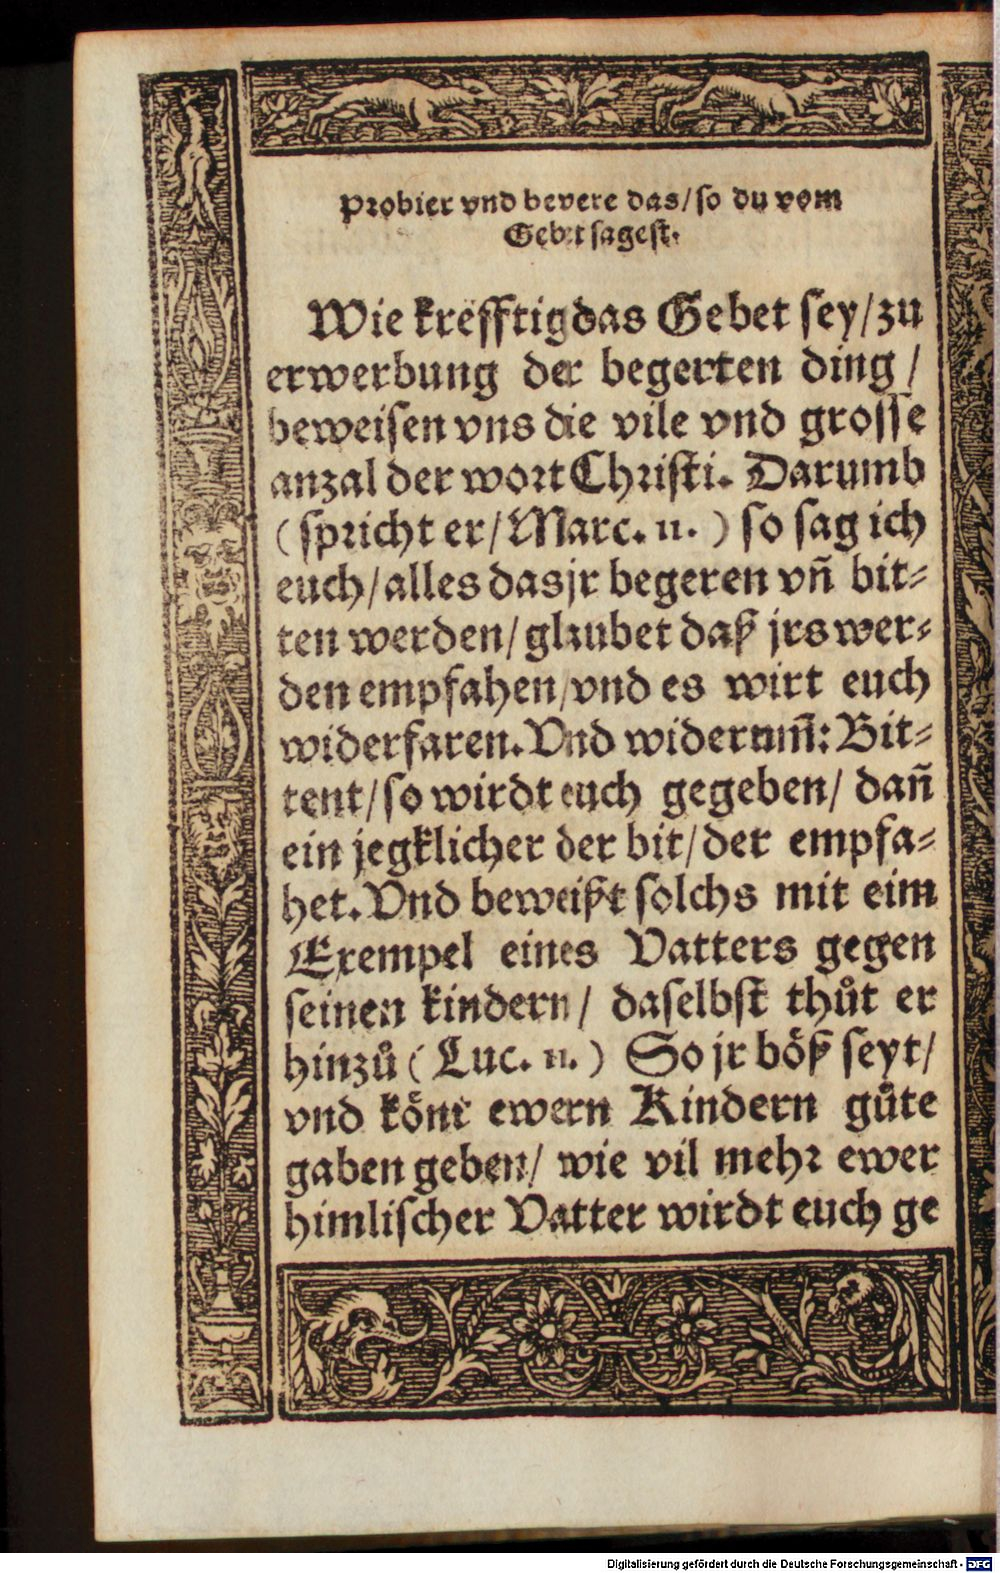 Probier vnd bevere das/ so du vom
Gebet sagest.
Wie krefftig das Gebet sey/ zu
erwerbung der begerten ding/
beweisen vns die vile vnd grosse
anzal der wort Christi. Darumb
(spricht er/ Marc. 11.) so sag ich
euch/ alles das jr begeren vñ bit⸗
ten werden/ glaubet daß jrs wer⸗
den empfahen/ vnd es wirt euch
widerfaren. Vnd widerum̃: Bit⸗
tent/ so wirdt euch gegeben/ dañ
ein jegklicher der bit/ der empfa⸗
het. Vnd beweißt solchs mit eim
Exempel eines Vatters gegen
seinen kindern/ daselbst thůt er
hinzů (Luc. 11.) So jr böß seyt/
vnd könt ewern Kindern gůte
gaben geben/ wie vil mehr ewer
himlischer Vatter wirdt euch ge
Digitalisierung gefördert durch die Deutsche Forschungsgemeinschaft - DFG